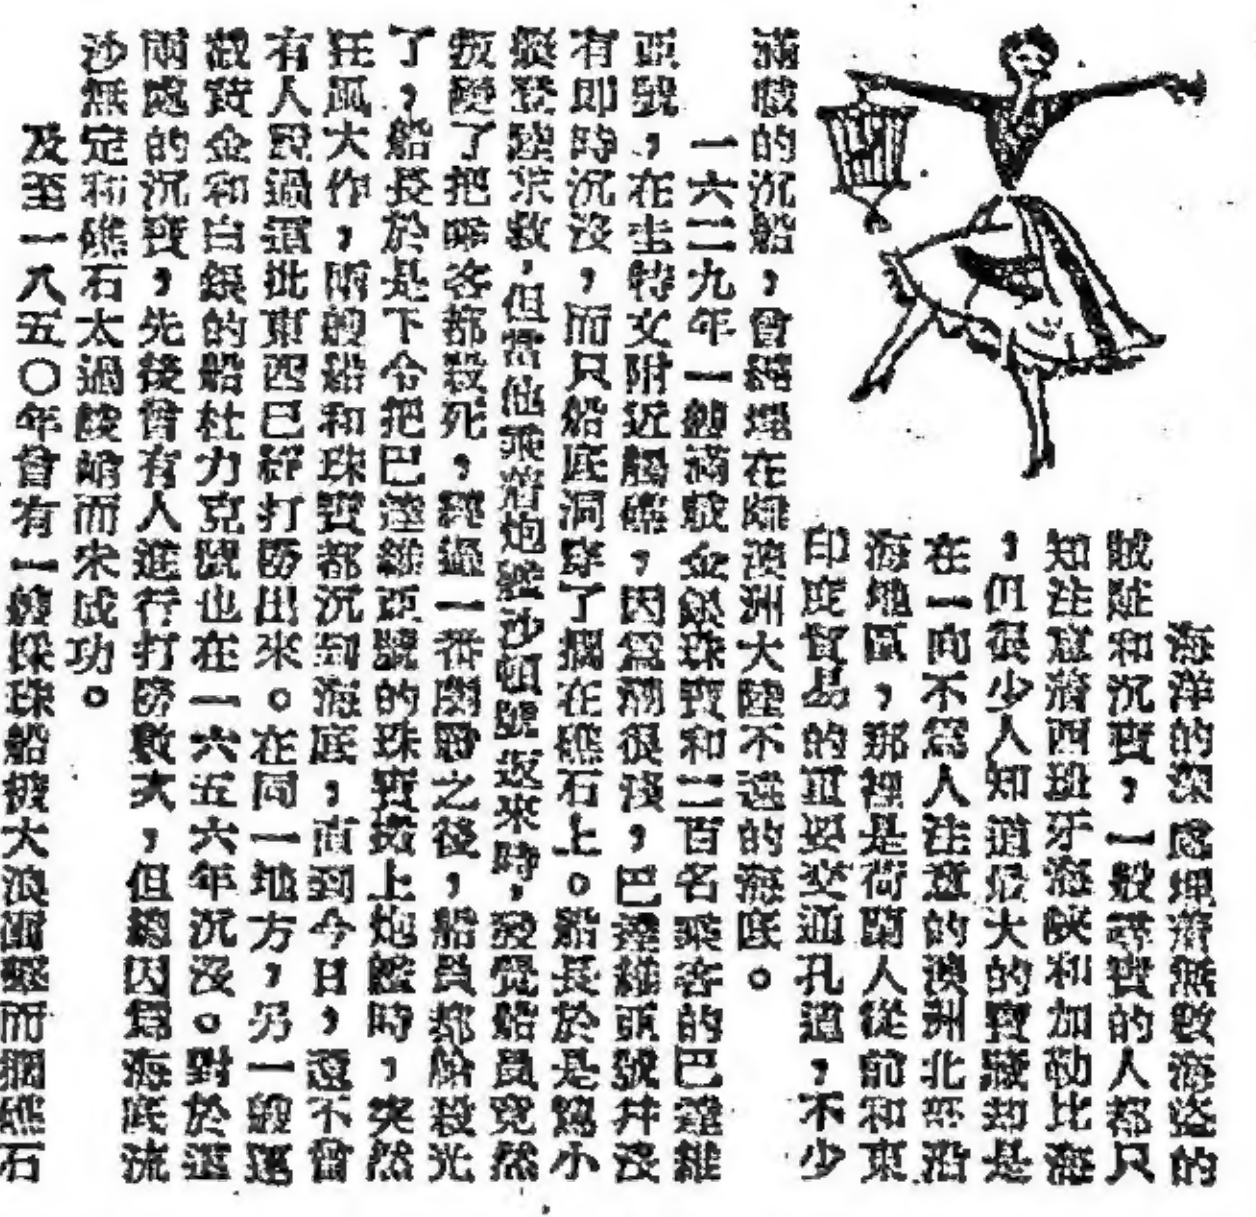 海洋的深處埋着無數海盜的
賊贓和沉寶，一般尋寶的人都只
知注意着西班牙海峽和加勒比海
，但很少人知道最大的寶藏却是
在一向不爲人注意的澳洲北部沿
海地區，那裡是荷蘭人從前和東
印度貿易的重要交通孔道，不少
滿載的沉船，曾經埋在離澳洲大陸不遠的海底。
一六二九年一艘滿載金銀珠寶和二百名乘客的巴達維
亞號，在圭特文附近觸礁，因爲潮很淺，巴達維亞號并沒
有即時沉沒，而只船底洞穿了擱在礁石上。船長於是駕小
艇登陸求救，但當他乘着炮艦沙頓號返來時，發覺船員竟然
叛變了把乘客都殺死，經過一番鬥爭之後，船員都給殺光
了，船長於是下令把巴達維亞號的珠寶搬上炮艦時，突然
狂風大作，兩艘船和珠寶都沉到海底，直到今日，還不曾
有人說過這批東西已經打撈出來。在同一地方，另一艘運
載黃金和白銀的船杜力克號也在一六五六年沉沒。對於這
兩處的沉寶，先後曾有人進行打撈數次，但總因爲海底流
沙無定和礁石太過峻峭而未成功。
及至一八五〇年曾有一艘採珠船被大浪衝擊而擱礁石